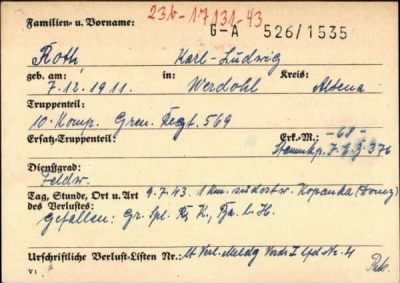 23b-17131-43
Familien- u. Vorname: G-A 526/1535
Roth Karl-Ludwig
geb. am: in: Kreis:
7.12.1911. Werdohl Altena
Truppenteil:
10. Komp. Gren. Regt. 569
Ersatz-Truppenteil: Erk.-M.: -68-
Stammkp. J.E.J. 376
Dienstgrad:
Feldw.
Tag, Stunde, Ort u. Art 9.7.43. 1 km. südostw. Kopanka (Donez)
des Verlustes:
gefallen: Gr. Spl. R, K,
Urschriftliche Verlust-Listen Nr.: Verl. Meldg lfd Nr. 4
V 1